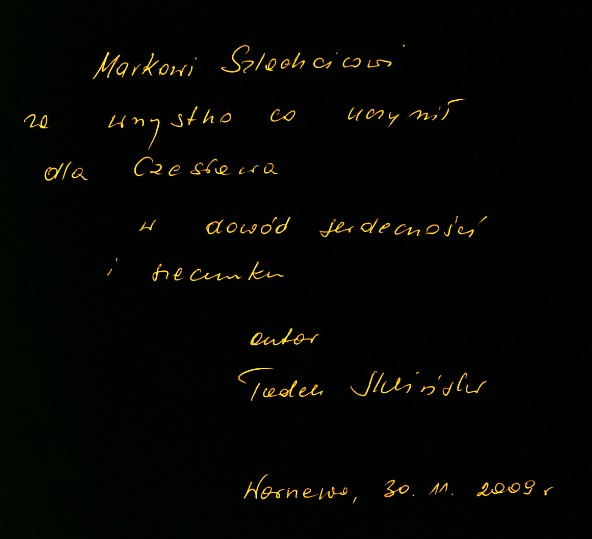 Markowi Szlachcicowi
za wszystko co uczynił
dla Czesława
w dowód serdeczności
i szacunku
autor
Tadek
Warszawa, 30. 11. 2009 r